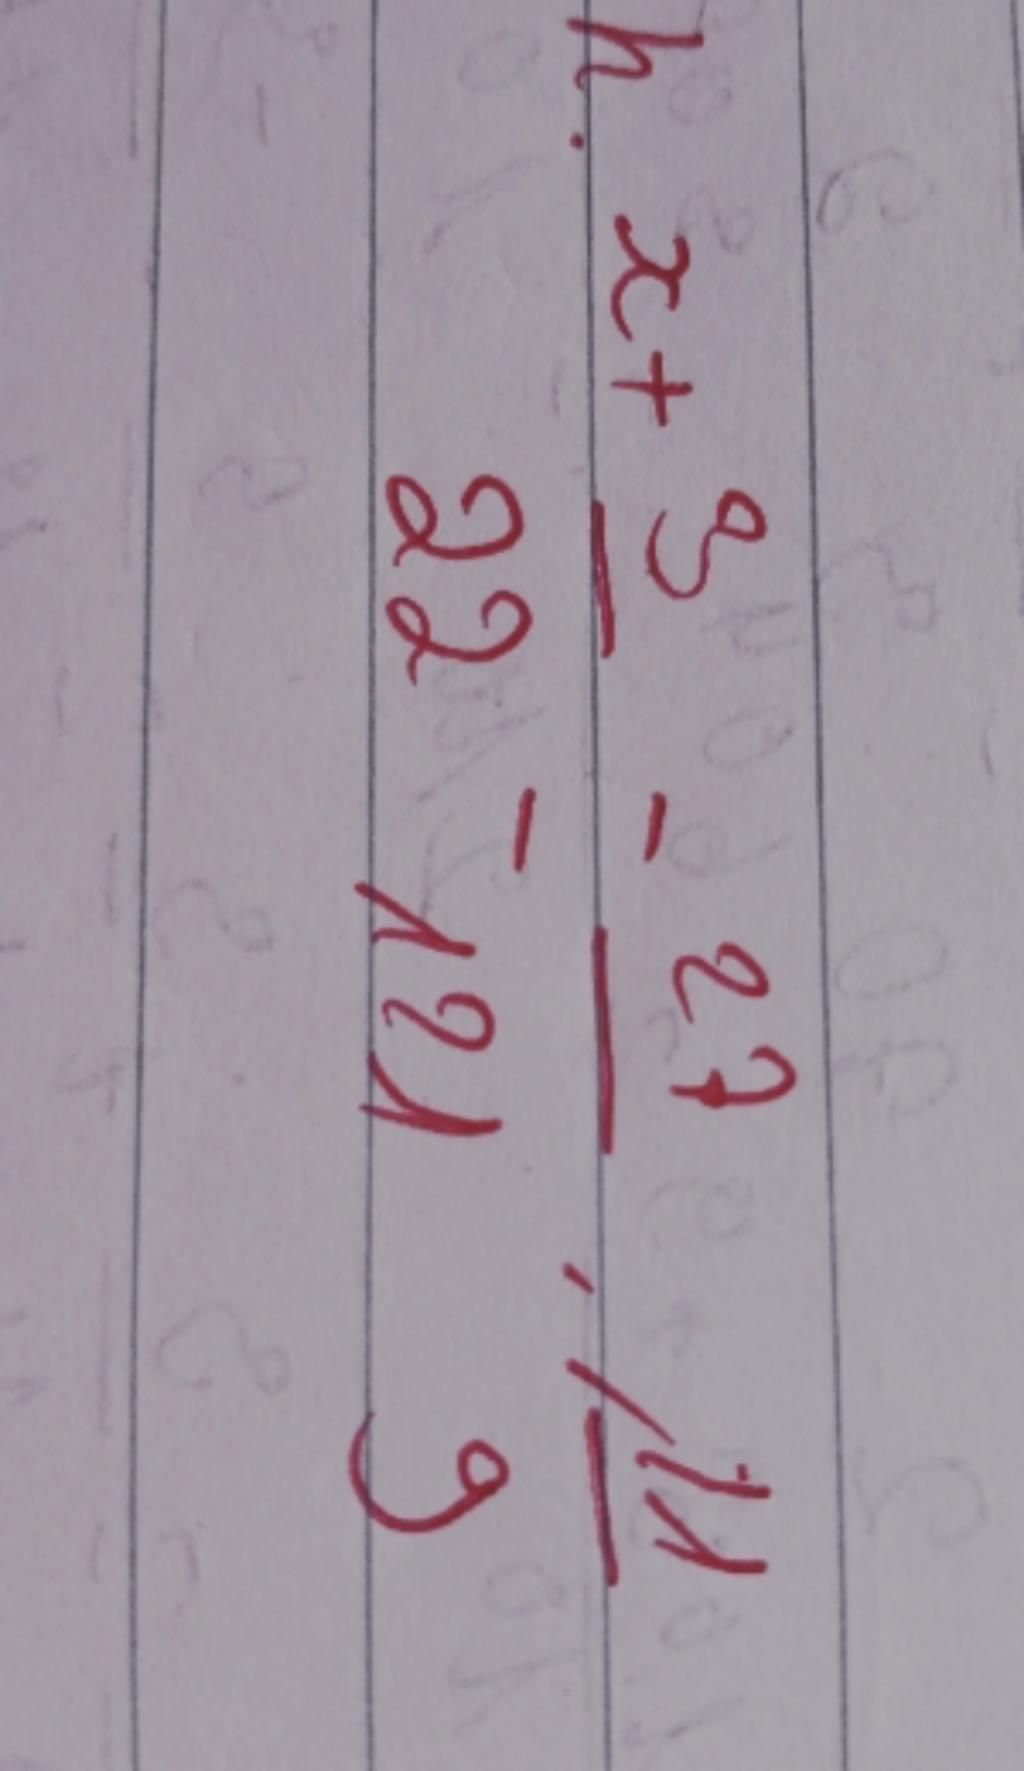 h. x + 9/22 = 27/121 · 11/9